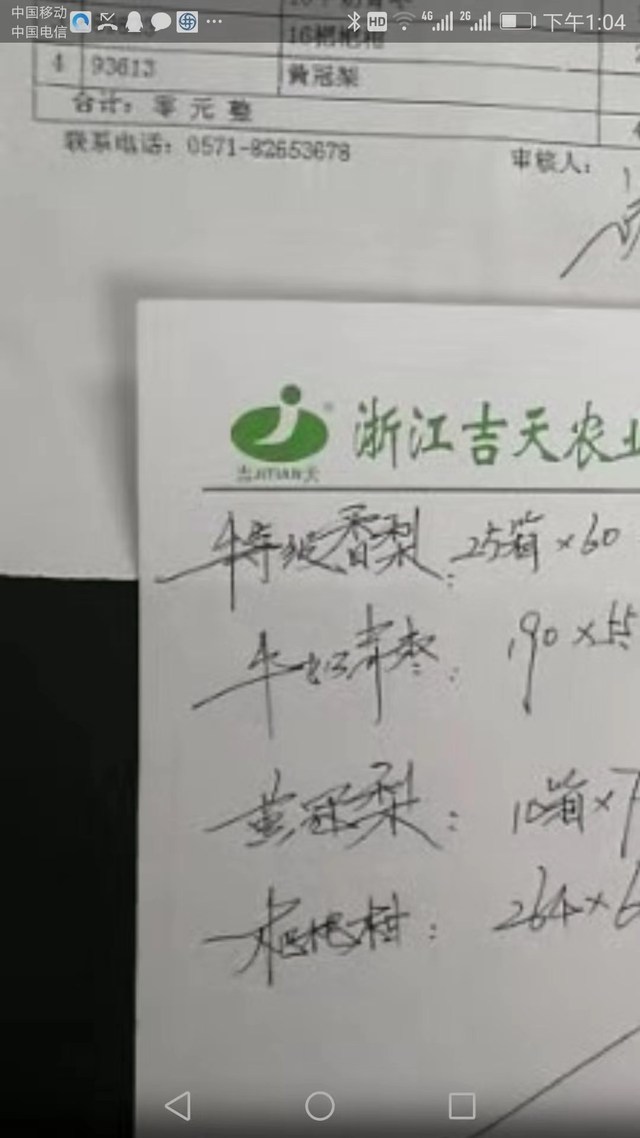 中国移动
中国电信
HD 4G 2G 下午1:04
16粑粑柑
4 93613 黄冠梨
合计: 零元整
联系电话: 0571-82653678 审核人:
浙江吉天农业
吉JITIAN天
特级香梨: 25箱×60
牛奶青枣: 190×55
黄冠梨: 10箱×7
粑粑柑: 264×6